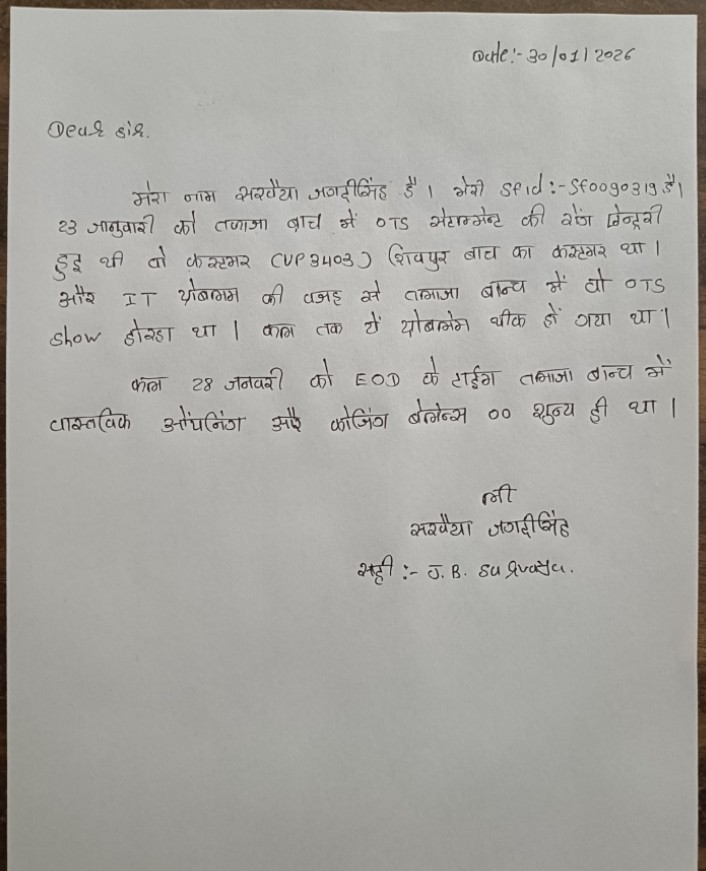 Date:- 30/01/2026
Dear sir.
मेरा नाम सरवैया जगदीसिंह है। मेरी sfid:- Sf0090319 है।
23 जानुवारी को तळाजा ब्रांच में OTS सेटालमेन्ट की रोंग ऐन्ट्ररी
हुइ थी वो कस्टमर (VP3403) शिवपुर ब्रांच का कस्टमर था।
और IT प्रोबलम की वजह से तलाजा ब्रान्च में वो OTS
show होरहा था। कल तक ये प्रोबलेम ठीक हो गया था।
कल 28 जनवरी को EOD के टाईम तलाजा ब्रान्च में
वास्तविक ओंपनिंग और क्लोजिंग बेलेन्स 00 शुन्य ही था।
ली
सरवैया जगदीसिंह
सही :- J. B. Sarvaiya.